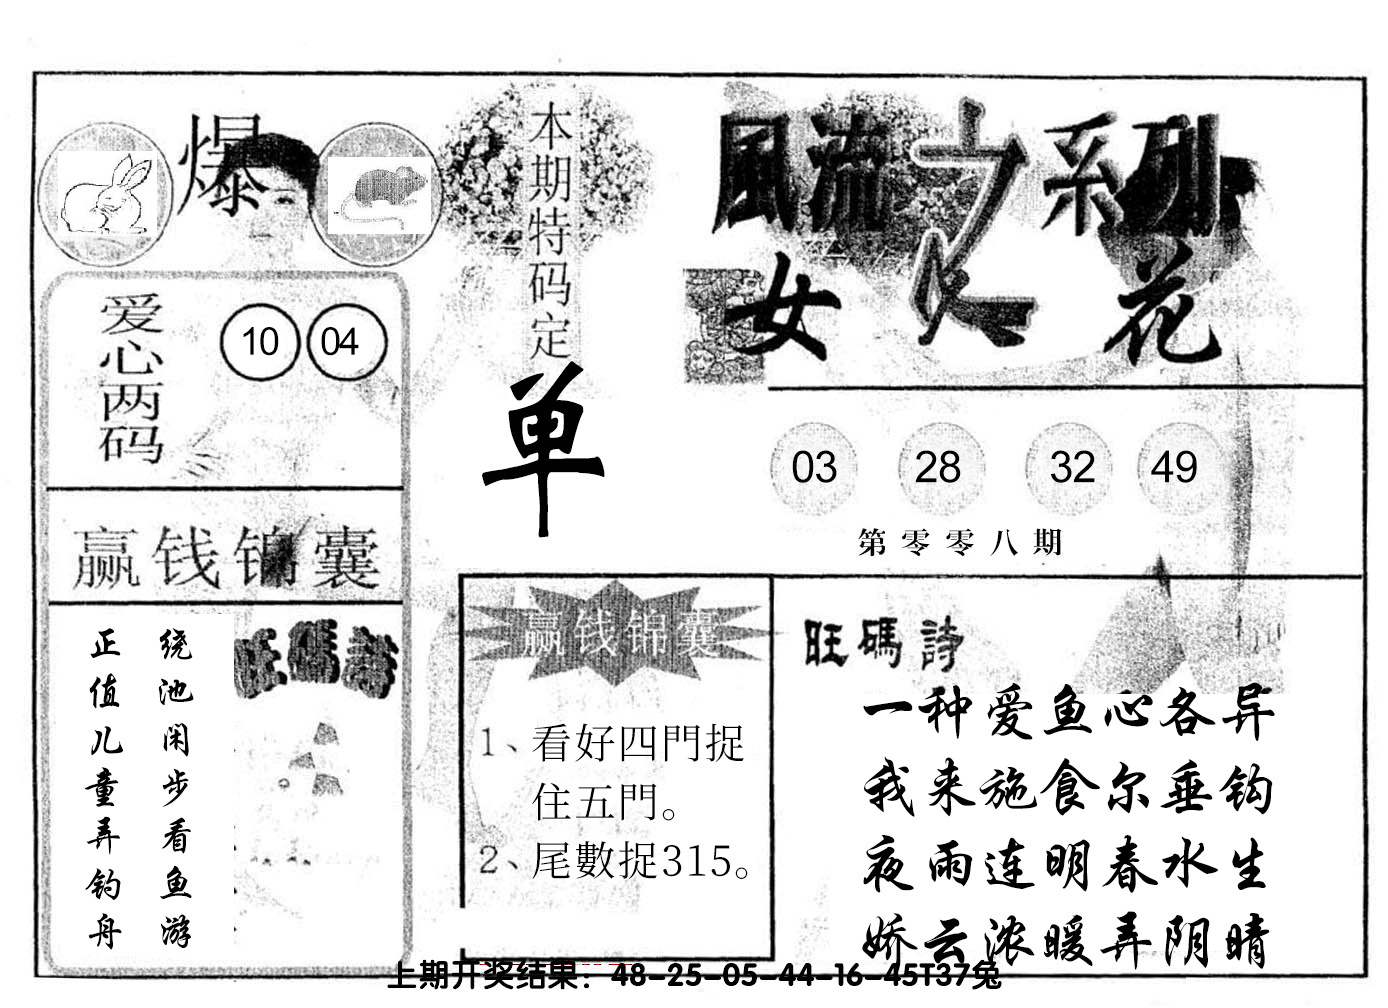 爆
本期特码定
单
風流之系列
女人花
爱心两码
10 04
赢钱锦囊
旺碼詩
绕池闲步看鱼游
正值儿童弄钓舟
03 28 32 49
第零零八期
赢钱锦囊
1、看好四門捉
住五門。
2、尾數捉315。
旺碼詩
一种爱鱼心各异
我来施食尔垂钩
夜雨连明春水生
娇云浓暖弄阴晴
上期开奖结果：48-25-05-44-16-45T37兔